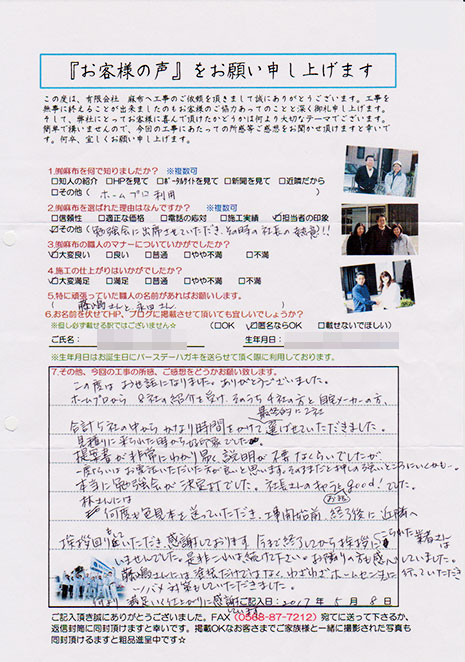 『お客様の声』をお願い申し上げます
この度は、有限会社 麻布へ工事のご依頼を頂きまして誠にありがとうございます。工事を
無事に終えることが出来ましたのもお客様のご協力あってのことと深く御礼申し上げます。
そして、弊社にとってお客様に喜んで頂けたかどうかは何より大切なテーマでございます。
簡単で構いませんので、今回の工事にあたっての所感等ご感想をお聞かせ頂けますと幸いです。
何卒、宜しくお願い申し上げます。
1.㈲麻布を何で知りましたか? ※複数可
□知人の紹介 □HPを見て □ポータルサイトを見て □新聞を見て □近隣だから
☑その他( ホームプロ利用 )
2.㈲麻布を選ばれた理由はなんですか? ※複数可
□信頼性 □適正な価格 □電話の応対 □施工実績 ☑担当者の印象
☑その他(勉強会に出席させていただき、その時の社長の熱意!!)
3.㈲麻布の職人のマナーについていかがでしたか?
☑大変良い □良い □普通 □やや不満 □不満
4.施工の仕上がりはいかがでしたか?
☑大変満足 □満足 □普通 □やや不満 □不満
5.特に頑張っていた職人の名前があればお願いします。
( 藤嶋さんと永田さん )
6.お名前を伏せてHP、ブログに掲載させて頂いても宜しいでしょうか?
※但し必ず載せる訳ではございません☆ (□OK ☑匿名ならOK □載せないでほしい)
ご氏名: 生年月日:
※生年月日はお誕生日にバースデーハガキを送らせて頂く際に利用しております。
7.その他、今回の工事の所感、ご感想をどうかお願い致します。
この度はお世話になりました。ありがとうございました。
ホームプロから 8社の紹介を受け、そのうち4社の方と自宅メーカーの方、
最終的に2社
合計5社の中からかなり時間をかけて選ばせていただきました。
見積りに来られた時から好印象でした。
提案書が非常にわかり易く、説明が不要なくらいでしたが、
一度くらいはお会いいただいた方が良いと思います。そのままだと押しの強いところにいくかも…。
本当に勉強会が決定打でした。社長さんのキャラもgood!でした。
林さんには
何度も色見本を送っていただき、工事開始前、終了後に近隣へ
挨拶回りをいただき、感謝しております。今まで終了してから挨拶に
こられた業者さんは
いませんでした。是非これは続けて下さい。お隣りの方も感心していました。
藤嶋さんには塗装だけではなく、わざわざホームセンターに行っていただき
対策もしていただきました。
何より満足いく仕上がりに感謝しています。
ご記入日:2017年5月8日
ご記入頂き誠にありがとうございました。FAX(0568-87-7212)宛てに送って下さるか、
返信封筒に同封頂けますと幸いです。掲載OKなお客さまでご家族様と一緒に撮影された写真も
同封頂けるますと粗品進呈中です☆